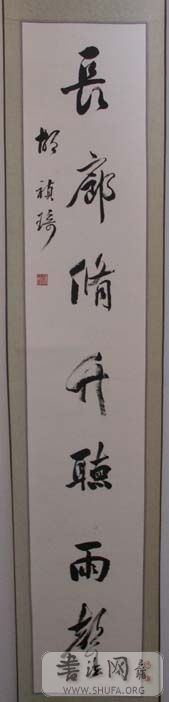 長廊脩竹聽雨聲
胡禎琦
書法网
WWW.SHUFA.ORG